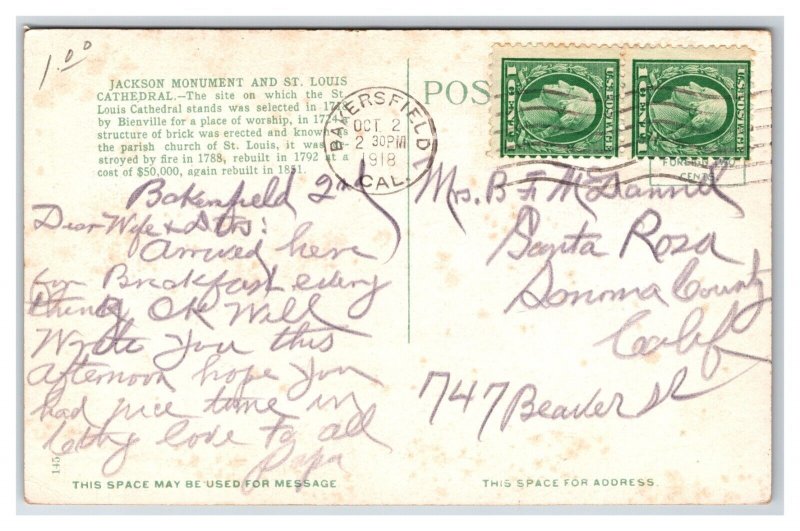 1.00
JACKSON MONUMENT AND ST. LOUIS
CATHEDRAL.—The site on which the St.
Louis Cathedral stands was selected in
by Bienville for a place of worship, in 1724 a
structure of brick was erected and known as
the parish church of St. Louis, it was
stroyed by fire in 1788, rebuilt in 1792 at a
cost of $50,000, again rebuilt in 1851.
POS
BAKERSFIELD
OCT 2
2 30PM
1918
CAL.
U.S. POSTAGE
1 CENT 1
U.S. POSTAGE
1 CENT 1
FOREIGN TWO
CENTS
Bakersfield 2nd
Dear Wife &
Arrived here
for Breakfast every
thing OK Will
Write You this
afternoon hope You
had nice time in
love to all
Papa
Mrs. B F McDannel
Santa Rosa
Sonoma County
Calif
747 Beaver St
145
THIS SPACE MAY BE USED FOR MESSAGE
THIS SPACE FOR ADDRESS.